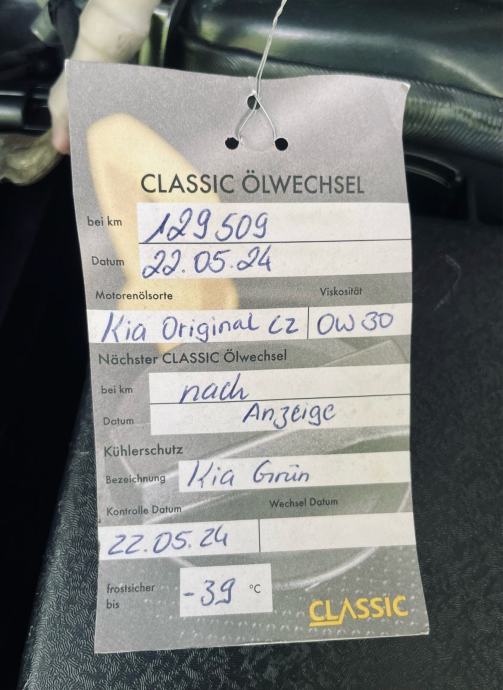 CLASSIC ÖLWECHSEL
bei km 129509
Datum 22.05.24
Motorenölsorte Viskosität
Kia Original C2 0W30
Nächster CLASSIC Ölwechsel
bei km nach
Datum Anzeige
Kühlerschutz
Bezeichnung Kia Grün
Kontrolle Datum Wechsel Datum
22.05.24
frostsicher
bis -39 °C
CLASSIC